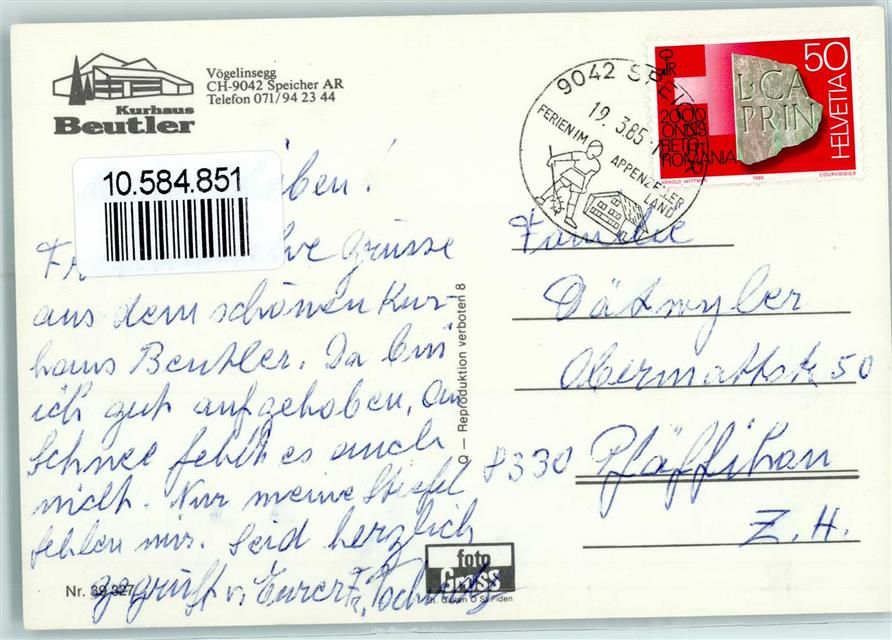 Kurhaus
Beutler
Vögelinsegg
CH-9042 Speicher AR
Telefon 071/94 23 44
10.584.851
ben!
Grüsse
aus dem schönen Kur-
haus Beutler. Da bin
ich gut aufgehoben, an
Schnee fehlt es auch
nicht. Nur meine Stiefel
fehlen mir. Seid herzlich
gegrüsst v. Eurer
Nr. 39 327
Q — Reproduktion verboten 8
foto
Gross
St. Gallen O St. Fiden
9042 SPEICHER
19. 3.85
FERIEN IM
APPENZELLER
LAND
50
HELVETIA
L·CA
PRIN
2000
ONNS
RETO-
ROMANIA
ARNOLD WITTMER
1985
COURVOISIER
Familie
Dätwyler
Obermattstr. 50
8330 Pfäffikon
Z.H.